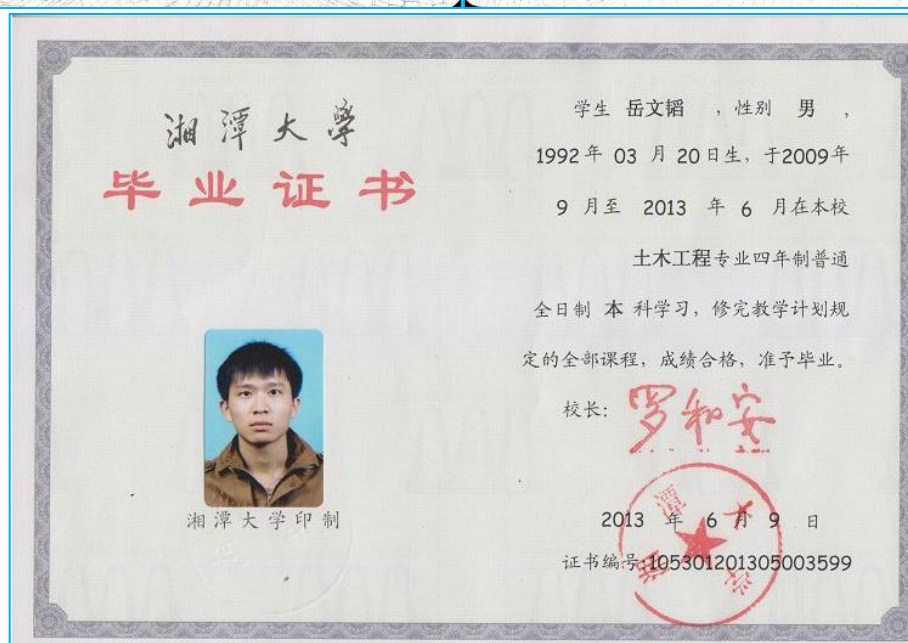 湘潭大學
毕业证书
湘潭大学印制
学生 岳文韬 ，性别 男 ，
1992年 03 月 20日生，于2009年
9 月至 2013 年 6 月在本校
土木工程专业四年制普通
全日制 本 科学习，修完教学计划规
定的全部课程，成绩合格，准予毕业。
校长：罗和安
2013 年 6 月 9 日
证书编号:105301201305003599
湘潭大学